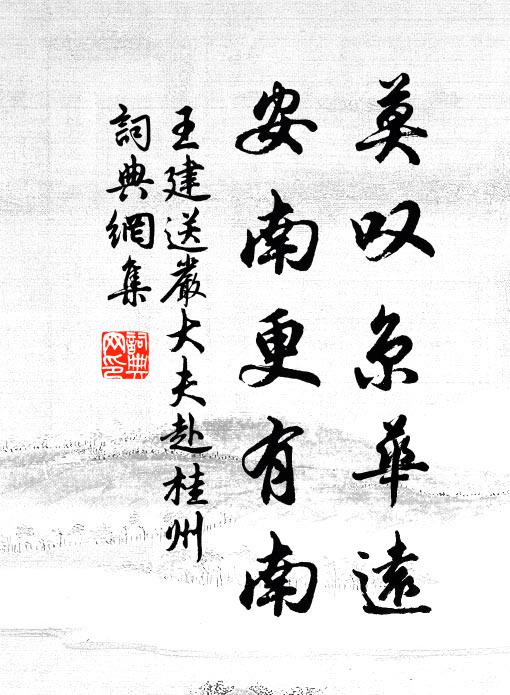 莫叹京華遠
安南更有南
王建送嚴大夫赴桂州
詞典網集
詞典网印